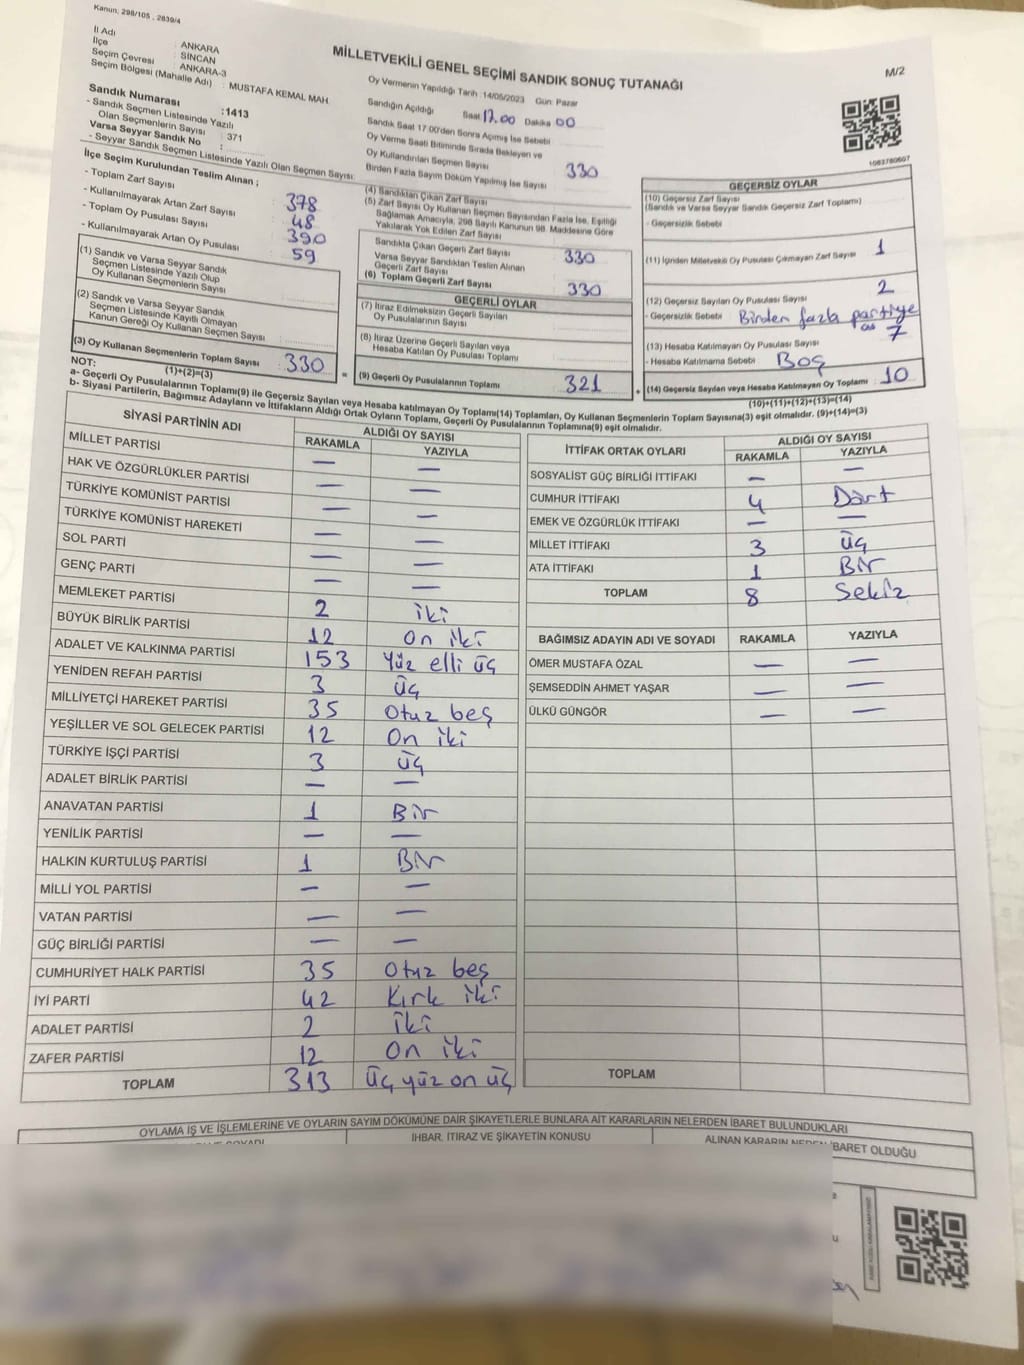 Kanun, 298/105 , 2839/4
İl Adı : ANKARA
İlçe : SİNCAN
Seçim Çevresi : ANKARA-3
Seçim Bölgesi (Mahalle Adı) : MUSTAFA KEMAL MAH.
MİLLETVEKİLİ GENEL SEÇİMİ SANDIK SONUÇ TUTANAĞI
M/2
1083780607
Sandık Numarası :1413
- Sandık Seçmen Listesinde Yazılı
Olan Seçmenlerin Sayısı : 371
Varsa Seyyar Sandık No :
- Seyyar Sandık Seçmen Listesinde Yazılı Olan Seçmen Sayısı:
İlçe Seçim Kurulundan Teslim Alınan ;
- Toplam Zarf Sayısı : 378
- Kullanılmayarak Artan Zarf Sayısı : 48
- Toplam Oy Pusulası Sayısı : 390
- Kullanılmayarak Artan Oy Pusulası : 59
(1) Sandık ve Varsa Seyyar Sandık
Seçmen Listesinde Yazılı Olup
Oy Kullanan Seçmenlerin Sayısı
(2) Sandık ve Varsa Seyyar Sandık
Seçmen Listesinde Kayıtlı Olmayan
Kanun Gereği Oy Kullanan Seçmen Sayısı
(3) Oy Kullanan Seçmenlerin Toplam Sayısı 330
(1)+(2)=(3)
Oy Vermenin Yapıldığı Tarih :14/05/2023 Gün: Pazar
Sandığın Açıldığı Saat 17.00 Dakika 00
Sandık Saat 17:00'den Sonra Açılmış İse Sebebi
Oy Verme Saati Bitiminde Sırada Bekleyen ve
Oy Kullandırılan Seçmen Sayısı
Birden Fazla Sayım Döküm Yapılmış İse Sayısı
(4) Sandıktan Çıkan Zarf Sayısı 330
(5) Zarf Sayısı Oy Kullanan Seçmen Sayısından Fazla İse, Eşitliği
Sağlamak Amacıyla, 298 Sayılı Kanunun 98. Maddesine Göre
Yakılarak Yok Edilen Zarf Sayısı
Sandıkta Çıkan Geçerli Zarf Sayısı 330
Varsa Seyyar Sandıktan Teslim Alınan
Geçerli Zarf Sayısı
(6) Toplam Geçerli Zarf Sayısı 330
GEÇERLİ OYLAR
(7) İtiraz Edilmeksizin Geçerli Sayılan
Oy Pusulalarının Sayısı
(8) İtiraz Üzerine Geçerli Sayılan veya
Hesaba Katılan Oy Pusulası Toplamı
= (9) Geçerli Oy Pusulalarının Toplamı 321
GEÇERSİZ OYLAR
(10) Geçersiz Zarf Sayısı
(Sandık ve Varsa Seyyar Sandık Geçersiz Zarf Toplamı)
- Geçersizlik Sebebi
(11) İçinden Milletvekili Oy Pusulası Çıkmayan Zarf Sayısı 1
(12) Geçersiz Sayılan Oy Pusulası Sayısı 2
- Geçersizlik Sebebi Birden fazla partiye
(13) Hesaba Katılmayan Oy Pusulası Sayısı 7
- Hesaba Katılmama Sebebi : Boş
+ (14) Geçersiz Sayılan veya Hesaba Katılmayan Oy Toplamı 10
(10)+(11)+(12)+(13)=(14)
NOT:
a- Geçerli Oy Pusulalarının Toplamı(9) ile Geçersiz Sayılan veya Hesaba katılmayan Oy Toplamı(14) Toplamları, Oy Kullanan Seçmenlerin Toplam Sayısına(3) eşit olmalıdır. (9)+(14)=(3)
b- Siyasi Partilerin, Bağımsız Adayların ve İttifakların Aldığı Ortak Oyların Toplamı, Geçerli Oy Pusulalarının Toplamına(9) eşit olmalıdır.
SİYASİ PARTİNİN ADI ALDIĞI OY SAYISI
RAKAMLA YAZIYLA
MİLLET PARTİSİ — —
HAK VE ÖZGÜRLÜKLER PARTİSİ — —
TÜRKİYE KOMÜNİST PARTİSİ — —
TÜRKİYE KOMÜNİST HAREKETİ — —
SOL PARTİ — —
GENÇ PARTİ — —
MEMLEKET PARTİSİ 2 iki
BÜYÜK BİRLİK PARTİSİ 12 on iki
ADALET VE KALKINMA PARTİSİ 153 Yüz elli üç
YENİDEN REFAH PARTİSİ 3 üç
MİLLİYETÇİ HAREKET PARTİSİ 35 Otuz beş
YEŞİLLER VE SOL GELECEK PARTİSİ 12 On iki
TÜRKİYE İŞÇİ PARTİSİ 3 üç
ADALET BİRLİK PARTİSİ — —
ANAVATAN PARTİSİ 1 Bir
YENİLİK PARTİSİ — —
HALKIN KURTULUŞ PARTİSİ 1 Bir
MİLLİ YOL PARTİSİ — —
VATAN PARTİSİ — —
GÜÇ BİRLİĞİ PARTİSİ — —
CUMHURİYET HALK PARTİSİ 35 Otuz beş
İYİ PARTİ 42 Kırk iki
ADALET PARTİSİ 2 iki
ZAFER PARTİSİ 12 On iki
TOPLAM 313 Üç yüz on üç
İTTİFAK ORTAK OYLARI ALDIĞI OY SAYISI
RAKAMLA YAZIYLA
SOSYALİST GÜÇ BİRLİĞİ İTTİFAKI — —
CUMHUR İTTİFAKI 4 Dört
EMEK VE ÖZGÜRLÜK İTTİFAKI — —
MİLLET İTTİFAKI 3 üç
ATA İTTİFAKI 1 Bir
TOPLAM 8 Sekiz
BAĞIMSIZ ADAYIN ADI VE SOYADI RAKAMLA YAZIYLA
ÖMER MUSTAFA ÖZAL — —
ŞEMSEDDİN AHMET YAŞAR — —
ÜLKÜ GÜNGÖR — —
TOPLAM
OYLAMA İŞ VE İŞLEMLERİNE VE OYLARIN SAYIM DÖKÜMÜNE DAİR ŞİKAYETLERLE BUNLARA AİT KARARLARIN NELERDEN İBARET BULUNDUKLARI
İHBAR, İTİRAZ VE ŞİKAYETİN KONUSU
ALINAN KARARIN NEDEN İBARET OLDUĞU